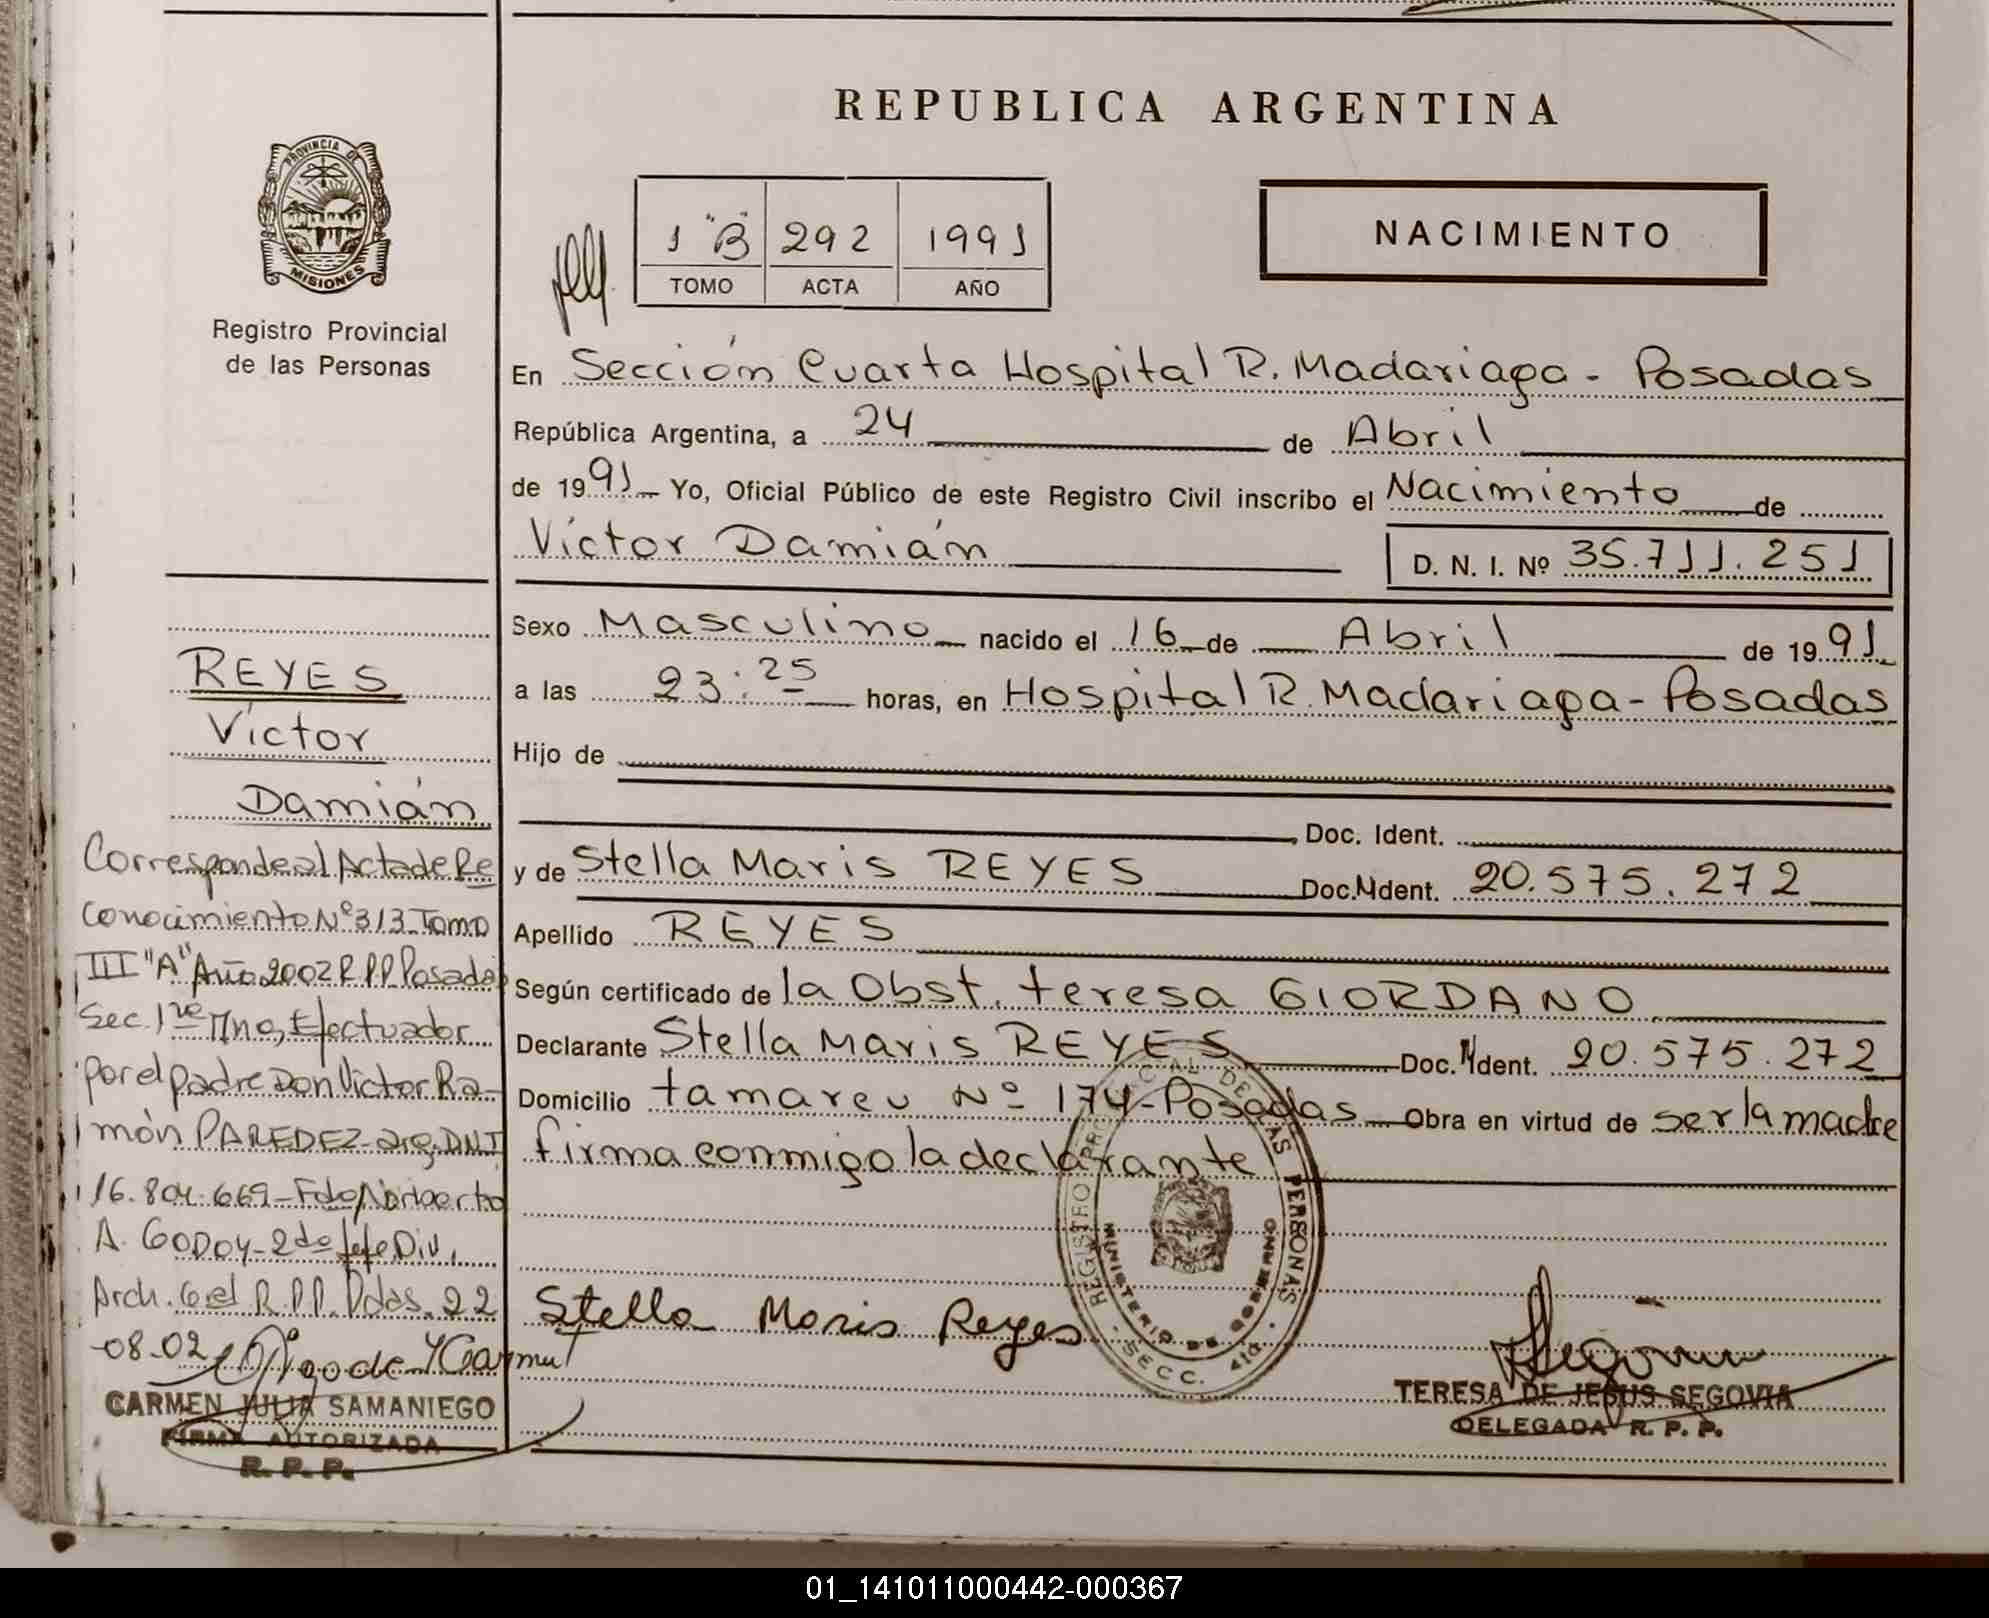 REPUBLICA ARGENTINA
PROVINCIA DE
MISIONES
Registro Provincial
de las Personas
1 "B" 292 1991
TOMO ACTA AÑO
NACIMIENTO
En Sección Cuarta Hospital R. Madariaga - Posadas
República Argentina, a 24 de Abril
de 1991 Yo, Oficial Público de este Registro Civil inscribo el Nacimiento de
Víctor Damián D. N. I. Nº 35.711.251
Sexo Masculino nacido el 16 de Abril de 1991
a las 23:25 horas, en Hospital R. Madariaga - Posadas
Hijo de
Doc. Ident.
y de Stella Maris REYES Doc. Ident. 20.575.272
Apellido REYES
Según certificado de la Obst. teresa GIORDANO
Declarante Stella Maris REYES Doc. Ident. 20.575.272
Domicilio tamareu Nº 174 - Posadas Obra en virtud de ser la madre
firma conmigo la declarante
Stella Maris Reyes
REGISTRO PROVINCIAL DE LAS PERSONAS
MINISTERIO DE GOBIERNO
SECC. 4ta
TERESA DE JESUS SEGOVIA
DELEGADA R. P. P.
REYES
Víctor
Damián
Corresponde al Acta de Re
conocimiento Nº 313 Tomo
III "A" Año 2002 R.P.P. Posadas
Sec. 1ra Mna, Efectuador
por el padre Don Víctor Ra-
món PAREDEZ - arg. DNI
16.804.669 - Fdo Norberto
A. GODOY - 2do Jefe Div.
Arch. Gral R.P.P. Pdas. 22
-08-02
CARMEN JULIA SAMANIEGO
FIRMA AUTORIZADA
R. P. P.
01_141011000442-000367